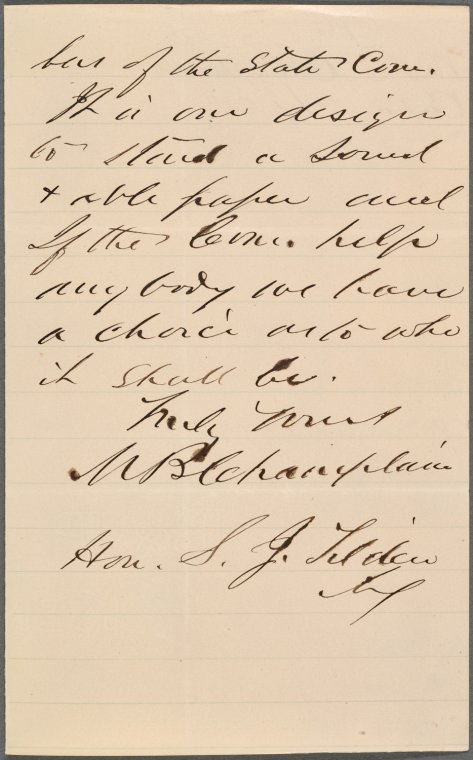 ber of the State Com.
It is our design
to start a sound
& able paper and
If the Com. help
any body we have
a choice as to who
it shall be.
Truly Yours
M B Champlain
Hon. S. J. Tilden
NY